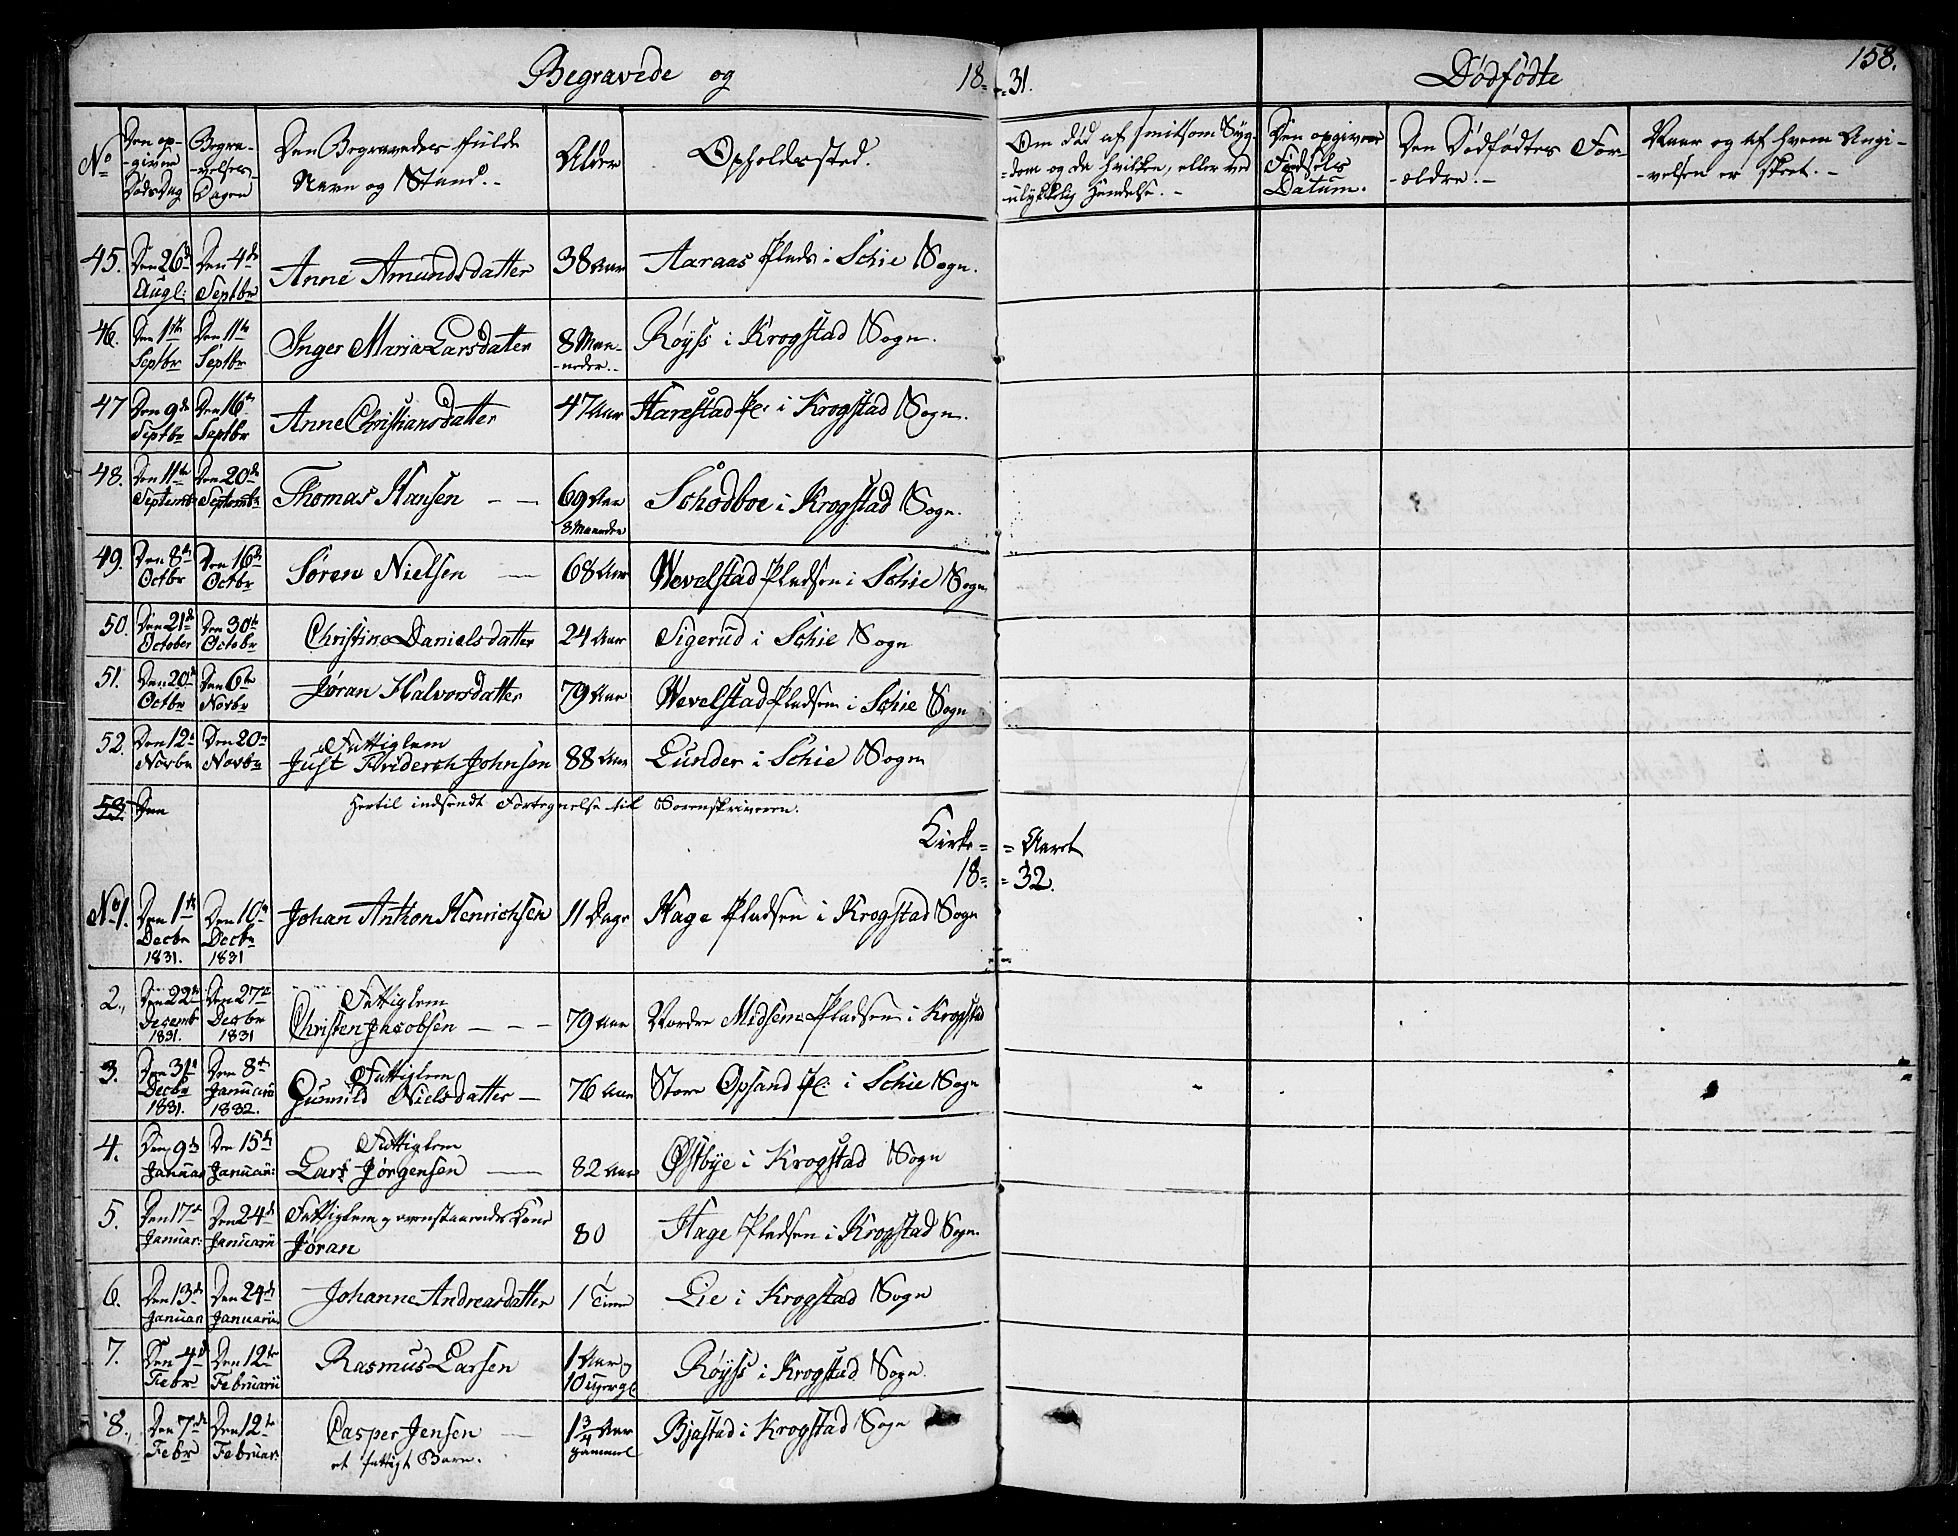 Begravede og 18=
=31. Dødfødte 158.
No
Den op-
-givne
Døds Dag
Begra-
-velses-
Dagen
Den Begravedes fulde
Navn og Stand.-
Alder
Opholdssted.
Om død af smitsom Syg-
-dom og da hvilken, eller ved
ulykkelig Hendelse.-
Den opgivne
Fødsels
Datum.
Den Dødfødtes For-
-ældre.-
Naar og af hvem Angi-
-velsen er skeet.-
45. Den 26de Augl: Den 4de Septbr Anne Amundsdatter 38 Aar Aaraas Plads i Schie Sogn.
46. Den 1ste Septbr Den 11te Septbr Inger Maria Larsdatter 8 Maa-
-neder.- Røyss i Krogstad Sogn.
47 Den 9de Septbr Den 16te Septbr Anne Christiansdatter 47 Aar Harestad Pl. i Krogstad Sogn.
48. Den 11te Septembr Den 20de Septembr Thomas Hansen 69 Aar
8 Maaneder Schodboe i Krogstad Sogn.
49. Den 8de Octbr Den 16de Octbr Søren Nielsen 68 Aar Wevelstad Pladsen i Schie Sogn
50. Den 21de October Den 30te Octobr Christine Danielsdatter 24 Aar Sigerud i Schie Sogn
51. Den 20de Octbr Den 6te Novbr Jøran Halvorsdatter 79 Aar Wevelstad Pladsen i Schie Sogn
52. Den 12te Novbr Den 20de Novbr Fattiglem
Just Friderch Johnsen 88 Aar Lunder i Schie Sogn
53. Den Hertil indsendt Fortegnelse til Sorenskriveren.
Kirke= =Aaret
18= =32.
No 1. Den 1ste Decbr 1831. Den 10de Decbr 1831 Johan Anthon Henrichsen 11 Dage Hage Pladsen i Krogstad Sogn
2. Den 22de Decemb 1831. Den 27de Decbr 1831 Fattiglem
Christen Jacobsen 79 Aar Nordre Midsem Pladsen i Krogstad
3. Den 31te Decbr 1831. Den 8de Januarii 1832. Fattiglem
Gunnild Nielsdatter 76 Aar Store Opsand Pl. i Schie Sogn
4. Den 9de Januar Den 15de Januari: Fattiglem
Lars Jørgensen 82 Aar Østbye i Krogstad Sogn
5. Den 17de Januar: Den 24de Januarii Fattiglem og ovenstaaendes Kone
Jøran 80 Hage Pladsen i Krogstad Sogn
6. Den 13de Januar Den 24de Januarii Johanne Andreasdatter 1 Time Lie i Krogstad Sogn
7. Den 4de Febr Den 12te Februarii Rasmus Larsen 1 Aar og
10 Uger gl. Røyss i Krogstad Sogn.
8. Den 7de Febr Den 12te Februar: Casper Jensen
et fattigt Barn. 1 3/4 Aar
gammel Bjastad i Krogstad Sogn